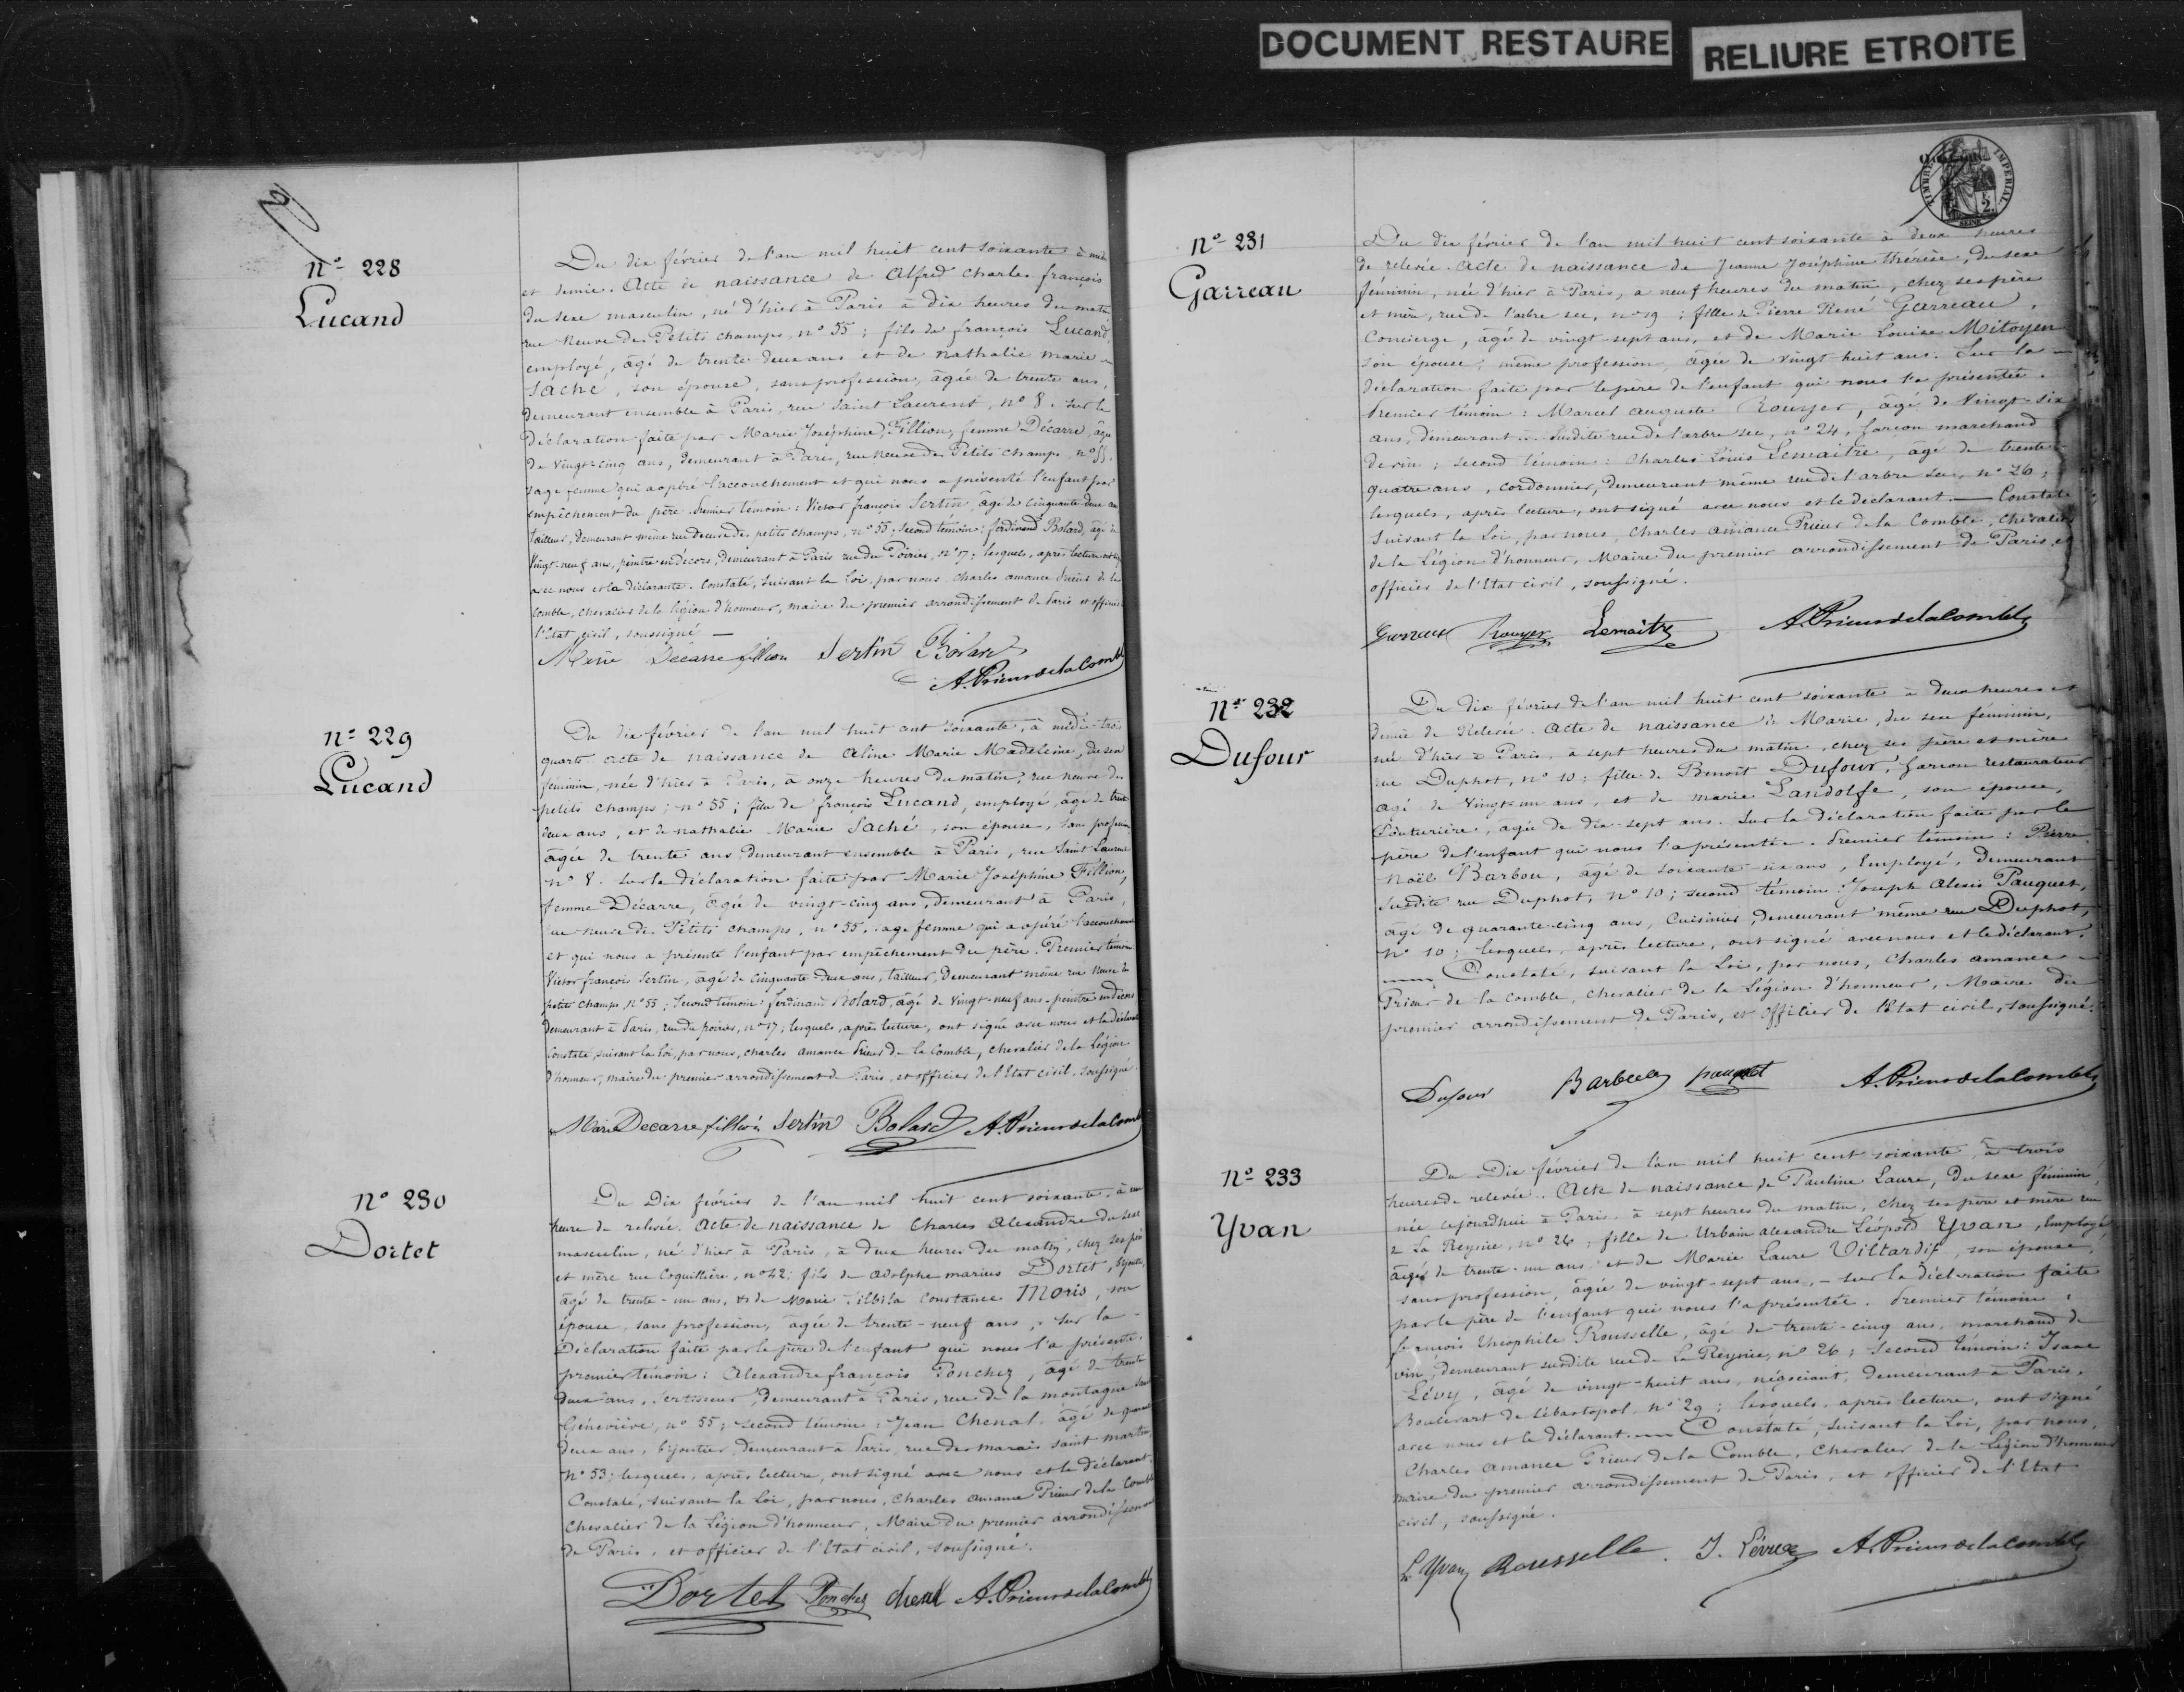 DOCUMENT RESTAURE
RELIURE ETROITE
TIMBRE IMPERIAL
2.
SEINE
N° 228
Lucand
Du dix février de l'an mil huit cent soixante à midi
et demie. Acte de naissance de Alfred Charles françois
du sexe masculin, né d'hier à Paris à dix heures du matin
rue Neuve des Petits champs, n° 55; fils de françois Lucand,
employé, âgé de trente deux ans et de nathalie marie
Saché, son épouse, sans profession, âgée de trente ans,
demeurant ensemble à Paris, rue Saint Laurent, n° 8. Sur la
Déclaration faite par Marie Joséphine Fillion, femme Décarre, âgée
de Vingt-cinq ans, demeurant à Paris, rue neuve des Petits champs, n° 55,
sage femme qui a opéré l'accouchement et qui nous a présenté l'enfant par
empêchement du père. Premier témoin: Victor françois Sertin, âgé de Cinquante deux ans
tailleur, demeurant même rue Neuve des petits champs, n° 55; second témoin: ferdinand Bolard, âgé de
Vingt-neuf ans, peintre en décors, demeurant à Paris rue du Poirier, n° 17; lesquels, après lecture ont signé
avec nous et la déclarante. Constaté, suivant la Loi, par nous Charles amance Prieur de la
Comble, chevalier de la légion d'honneur, maire du premier arrondissement de Paris et officier
l'Etat civil, soussigné —
Marie Decarre fillion Sertin Bolard
A. Prieur de la Comble
N° 229
Lucand
Du dix février de l'an mil huit cent soixante, à midi trois
quarts acte de naissance de Aline Marie Madeleine, du sexe
féminin, née d'hier à Paris, à onze heures du matin, rue neuve des
petits champs, n° 55; fille de françois Lucand, employé, âgé de trente
deux ans, et de nathalie Marie Saché, son épouse, sans profession
âgée de trente ans demeurant ensemble à Paris, rue Saint Laurent
n° 8. Sur la déclaration faite par Marie Joséphine Fillion,
femme Décarre, âgée de vingt-cinq ans, demeurant à Paris,
rue neuve des Petits champs, n° 55, sage femme qui a opéré l'accouchement
et qui nous a présenté l'enfant par empêchement du père. Premier témoin
Victor françois Sertin, âgé de Cinquante-deux ans, tailleur, demeurant même rue Neuve des
petits champs, N° 55; second témoin: ferdinand Bolard, âgé de Vingt-neuf ans, peintre en décors
demeurant à Paris, rue du poirier, n° 17; lesquels, après lecture, ont signé avec nous et la déclarante
Constaté, suivant la Loi, par nous, Charles amance Prieur de la Comble, chevalier de la Légion
d'honneur, maire du premier arrondissement de Paris, et officier de l'Etat civil, soussigné.
Marie Decarre fillion Sertin Bolard A. Prieur de la Comble
N° 230
Dortet
Du Dix février de l'an mil huit cent soixante, à une
heure de relevée. Acte de naissance de Charles Alexandre du sexe
masculin, né d'hier à Paris, à deux heures du matin, chez ses père
et mère rue Coquillière, n° 42; fils de Adolphe marius Dortet, bijoutier,
âgé de trente-un ans, et de Marie Constance Moris, son
épouse, sans profession, âgée de trente-neuf ans, Sur la
Déclaration faite par le père de l'enfant qui nous l'a présenté.
premier témoin: Alexandre françois Ponchez, âgé de trente
deux ans, sertisseur, demeurant à Paris, rue de la montagne sainte
Géneviève, n° 55; second témoin: Jean Chenal, âgé de quarante
deux ans, bijoutier, demeurant à Paris, rue des marais saint martin,
n° 53; lesquels, après lecture, ont signé avec nous et le déclarant.
Constaté, suivant la Loi, par nous, Charles amance Prieur de la Comble
Chevalier de la Légion d'honneur, Maire du premier arrondissement
de Paris, et officier de l'Etat civil, soussigné.
Dortet Ponchez chenal A. Prieur de la Comble
N° 231
Garreau
Du dix février de l'an mil huit cent soixante à deux heures
de relevée. Acte de naissance de Jeanne Joséphine thérèse, du sexe
féminin, née d'hier à Paris, à neuf heures du matin, chez ses père
et mère, rue de l'arbre sec, n° 19; fille de Pierre René Garreau,
Concierge, âgé de vingt-sept ans, et de Marie Louise Mitoyen
son épouse; même profession, âgée de vingt-huit ans. Sur la
déclaration faite par le père de l'enfant qui nous l'a présentée.
Premier témoin: Marcel auguste Rouyer, âgé de Vingt-six
ans, demeurant susdite rue de l'arbre sec, n° 24, garçon marchand
de vin; second témoin: Charles Louis Lemaitre, âgé de trente-
quatre ans, cordonnier, demeurant même rue de l'arbre sec, n° 26;
lesquels, après lecture, ont signé avec nous et le déclarant. — Constaté
suivant la Loi, par nous, Charles amance Prieur de la Comble, chevalier
de la Légion d'honneur, Maire du premier arrondissement de Paris, et
officier de l'Etat civil, soussigné.
Garreau Rouyer Lemaitre A. Prieur de la Comble
N° 232
Dufour
Du dix février de l'an mil huit cent soixante à deux heures et
demie de Relevée. Acte de naissance de Marie, du sexe féminin,
née d'hier à Paris, à sept heures du matin, chez ses père et mère
rue Duphot, n° 10; fille de Benoît Dufour, garçon restaurateur
âgé de Vingt-un ans, et de marie Landolfe, son épouse,
Couturière, âgée de dix-sept ans. Sur la déclaration faite par le
père de l'enfant qui nous l'a présentée. Premier témoin: Pierre
Noël Barbou, âgé de soixante-six ans, Employé, demeurant
susdite rue Duphot, n° 10; second témoin: Joseph Alexis Pauquet,
âgé de quarante-cinq ans, Cuisinier, demeurant même rue Duphot,
n° 10; lesquels, après lecture, ont signé avec nous et le déclarant.
Constaté, suivant la Loi, par nous, Charles amance
Prieur de la Comble, chevalier de la Légion d'honneur, Maire du
premier arrondissement de Paris, et officier de l'Etat civil, soussigné.
Dufour Barbou pauquet A. Prieur de la Comble
N° 233
Yvan
Du Dix février de l'an mil huit cent soixante, à trois
heures de relevée. Acte de naissance de Pauline Laure, du sexe féminin,
née cejourd'hui à Paris, à sept heures du matin, chez ses père et mère rue
de La Reynie, n° 26; fille de Urbain alexandre Léopold Yvan, Employé,
âgé de trente-un ans, et de Marie Laure Viltardif, son épouse,
sans profession, âgée de vingt-sept ans, — sur la déclaration faite
par le père de l'enfant qui nous l'a présentée. Premier témoin:
françois théophile Rousselle, âgé de trente-cinq ans, marchand de
vin, demeurant susdite rue de La Reynie, n° 26; second témoin: Isaac
Lévy, âgé de vingt-huit ans, négociant, demeurant à Paris,
Boulevart de Sébastopol, n° 29; lesquels, après lecture, ont signé
avec nous et le déclarant. Constaté, suivant la Loi, par nous,
Charles amance Prieur de la Comble, Chevalier de la Légion d'honneur
maire du premier arrondissement de Paris, et officier de l'Etat
civil, soussigné.
L. Yvan Rousselle A. Prieur de la Comble